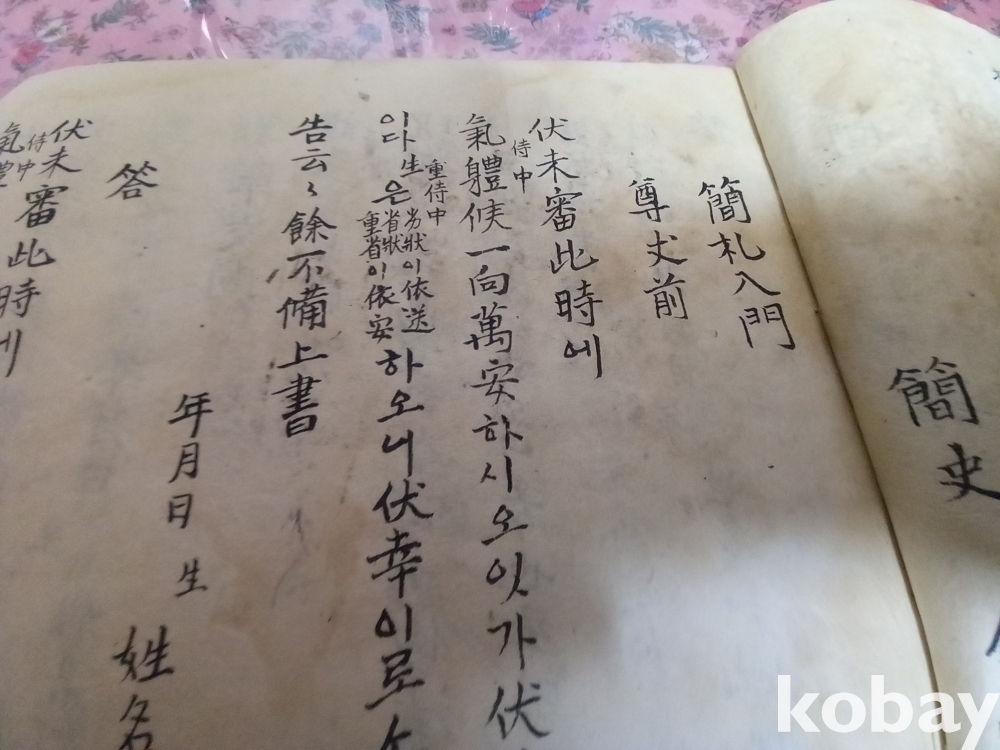 簡史
簡札入門
尊丈前
伏未審此時에
侍中
氣體候一向萬安하시오잇가伏
이다生은
重侍中
劣狀이依送
省狀
重省이依安
하오니伏幸이로소
告云々餘不備上書
年月日 生 姓名
答
伏未審此時에
侍中
氣體
kobay